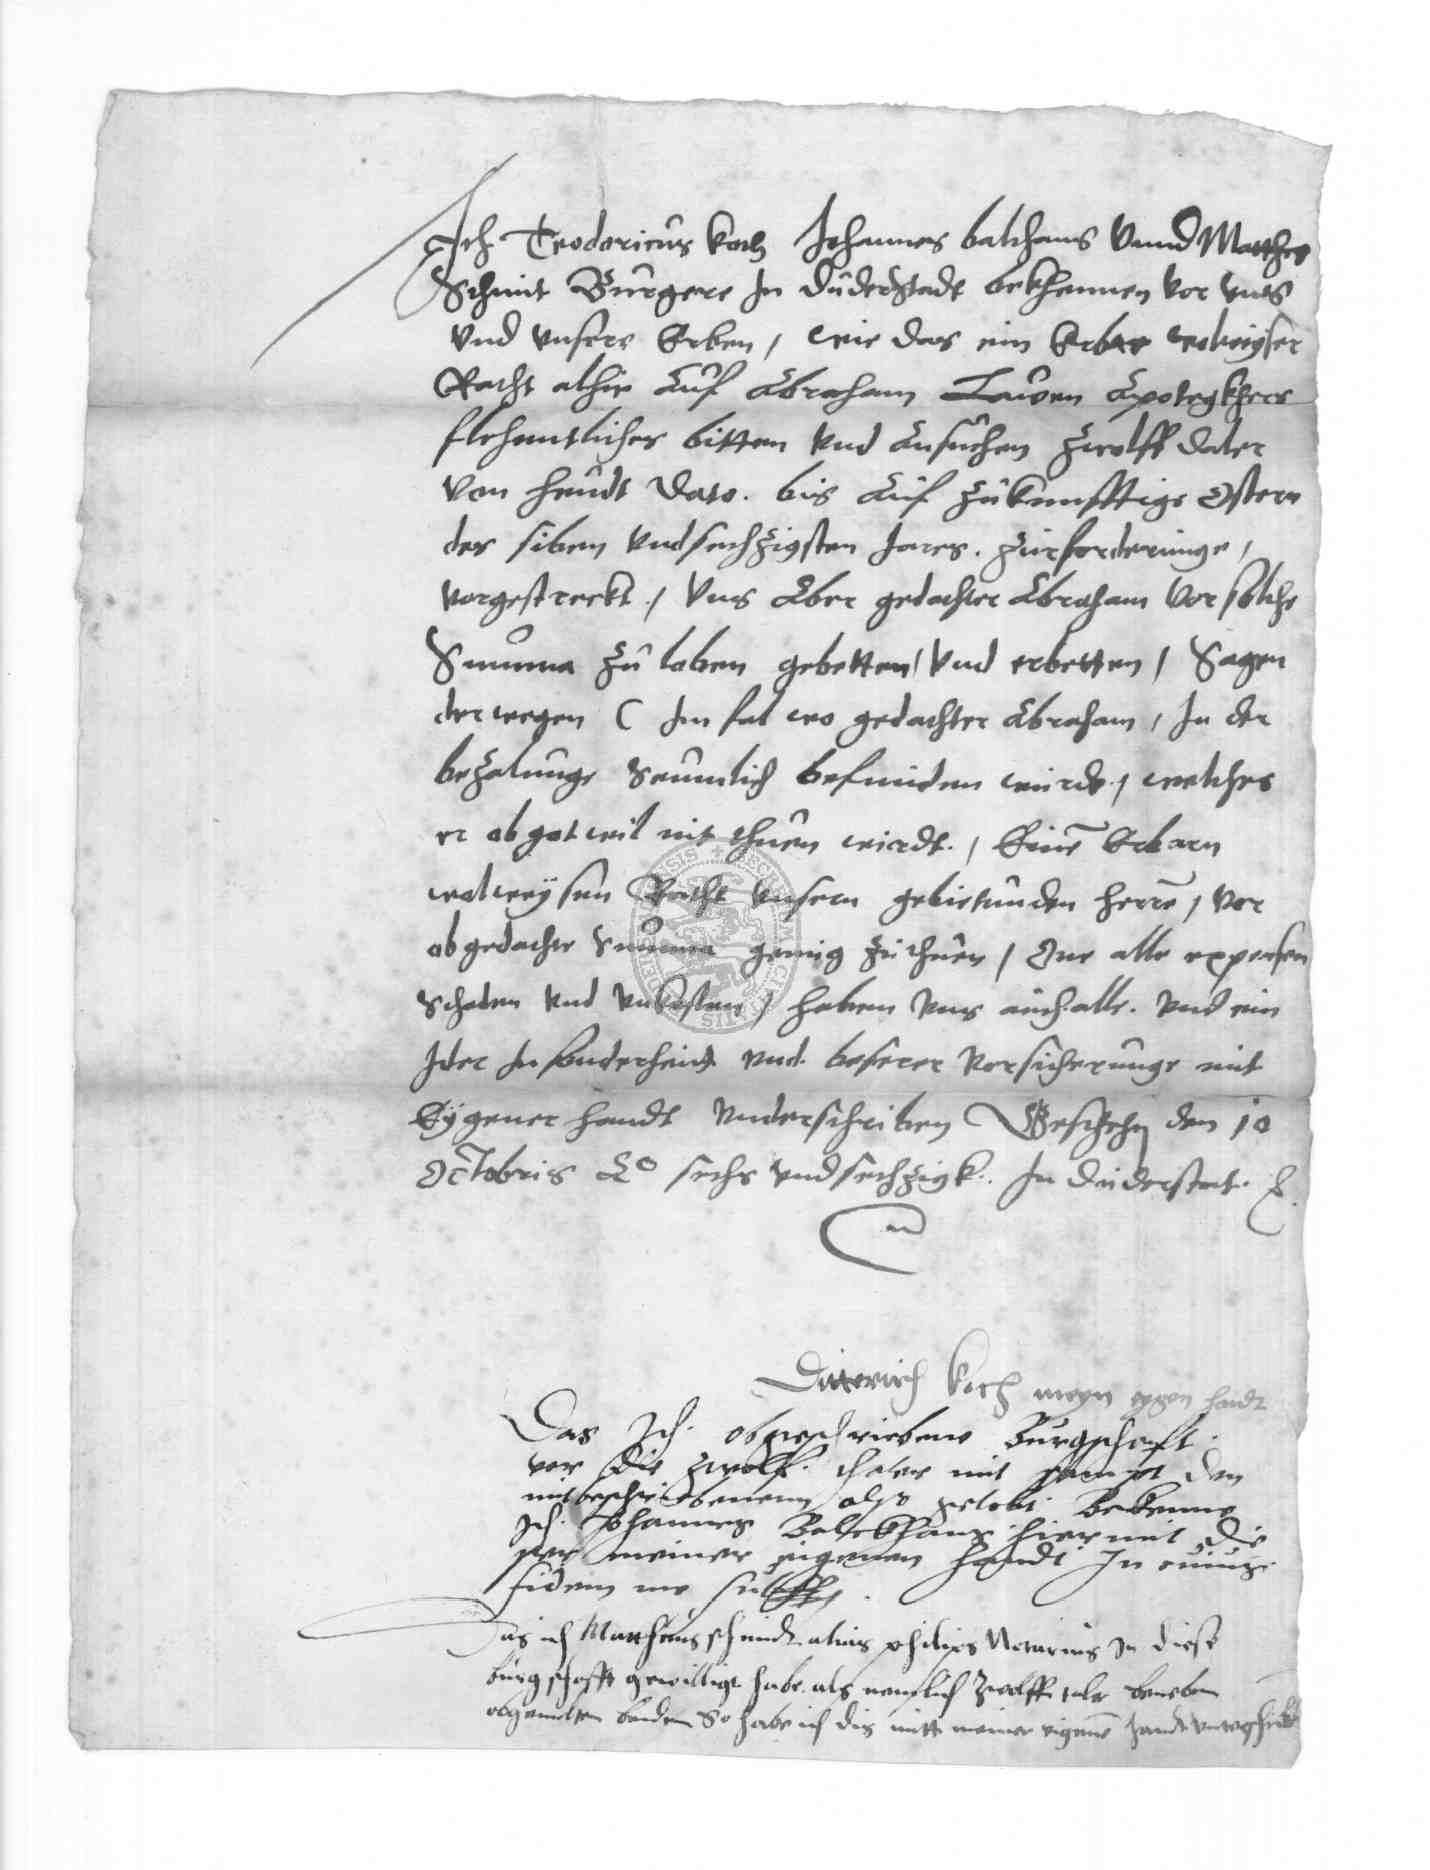 Ich Teodoricus Koch Johannes balthaus Vnnd Matthes
Schmit Burgere In Duderstadt bekhennen vor vnns
vnd vnsere Erben, wie das ein Erbar wolweyser
Ratht alhie Auf Abraham Lawen Apotegkhers
flehentliches bitten vnd Ansuchen Zwolff daler
von heudt dato. bis Auf Zukunfftige Ostern
des siben vndsechzigsten Jares. Zurforderunge,
vorgestreckt., Vns Aber gedachter Abraham Vor solche
Summa zu loben gebetten, vnd erbetten, Sagen
derwegen ( Im fal wo gedachter Abraham, In der
bezalunge Seumlich befunden wurde., welches
er ob got wil nit thuen wirdt., Eine Erbarn
wolweysen Ratht vnsern gebietunden herre, vor
obgedachte Summa genug zu thuen, One alle expensen
Schaden vnd vnkosten, haben vns auch alle. vnd ein
Ider In sonderheit vnd. beserer vorsicherunge mit
Eygener handt vnderschriben Geschehn den 10
Octobris Ao sechs vndsechzigk. In duderstat.
Ditterich Koch meyn eygen handt
Das Ich. obgeschriebene Burgschaft.
vor die zwolff. thaler mit sampt den
mitbeschriebenenn also gelobt Bekenne
Ich. Johannes Balckhaus hiermit die
meiner eigenen handt In cuius.
fidem me
Das ich Mattheus schmidt alias philips Notarius In diese
burgschafft gewilligt habe. als nemlich Zwolff taler beneben
obgemelten beiden So habe ich dis mitt meiner eigene handt